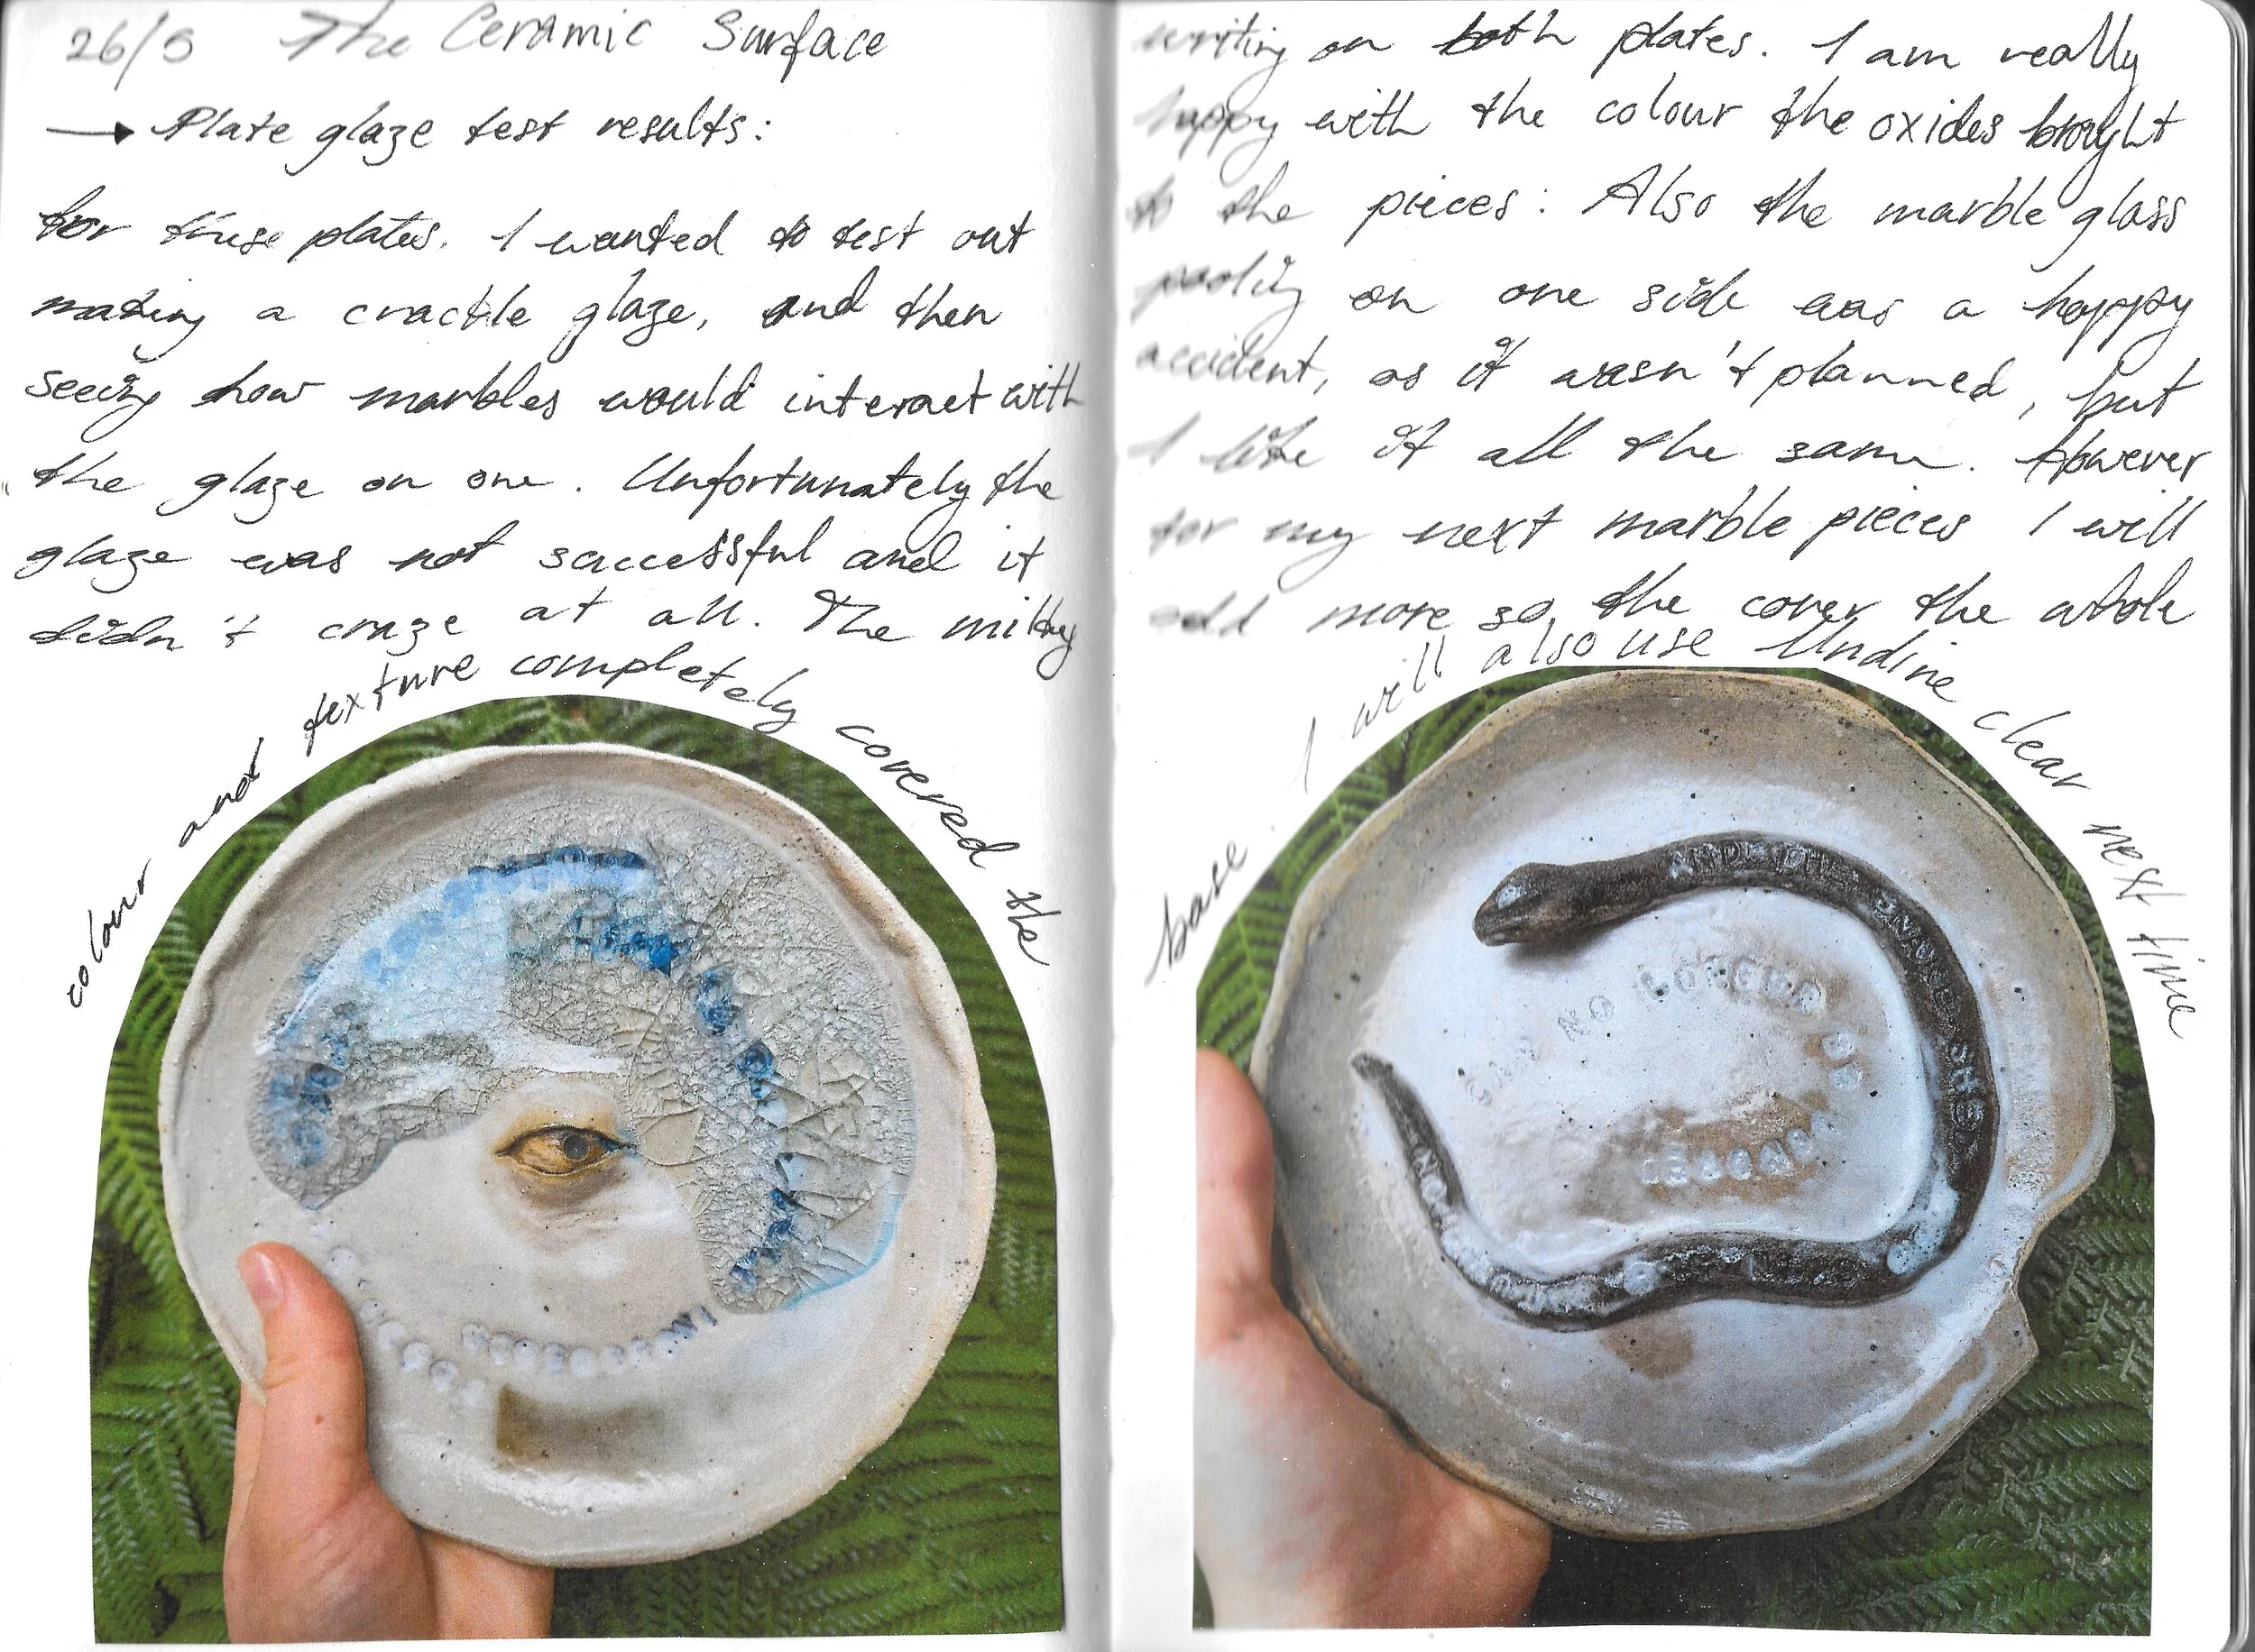 26/5 The Ceramic Surface
→ Plate glaze test results:
for these plates. I wanted to test out
making a crackle glaze, and then
seeing how marbles would interact with
the glaze on one. Unfortunately the
glaze was not successful and it
didn't craze at all. The milky
colour and texture completely covered the
writing on both plates. I am really
happy with the colour the oxides brought
to the pieces: Also the marble glass
pooling on one side was a happy
accident, as it wasn't planned, but
I like it all the same. However
for my next marble pieces I will
add more so the cover the whole
base I will also use Undine clear next time
NO LONGER BE